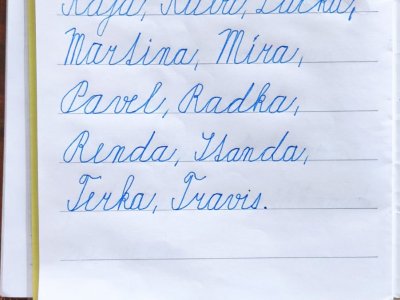 Lucka,
Martina, Míra,
Pavel, Radka,
Renda, Standa,
Terka, Travis.